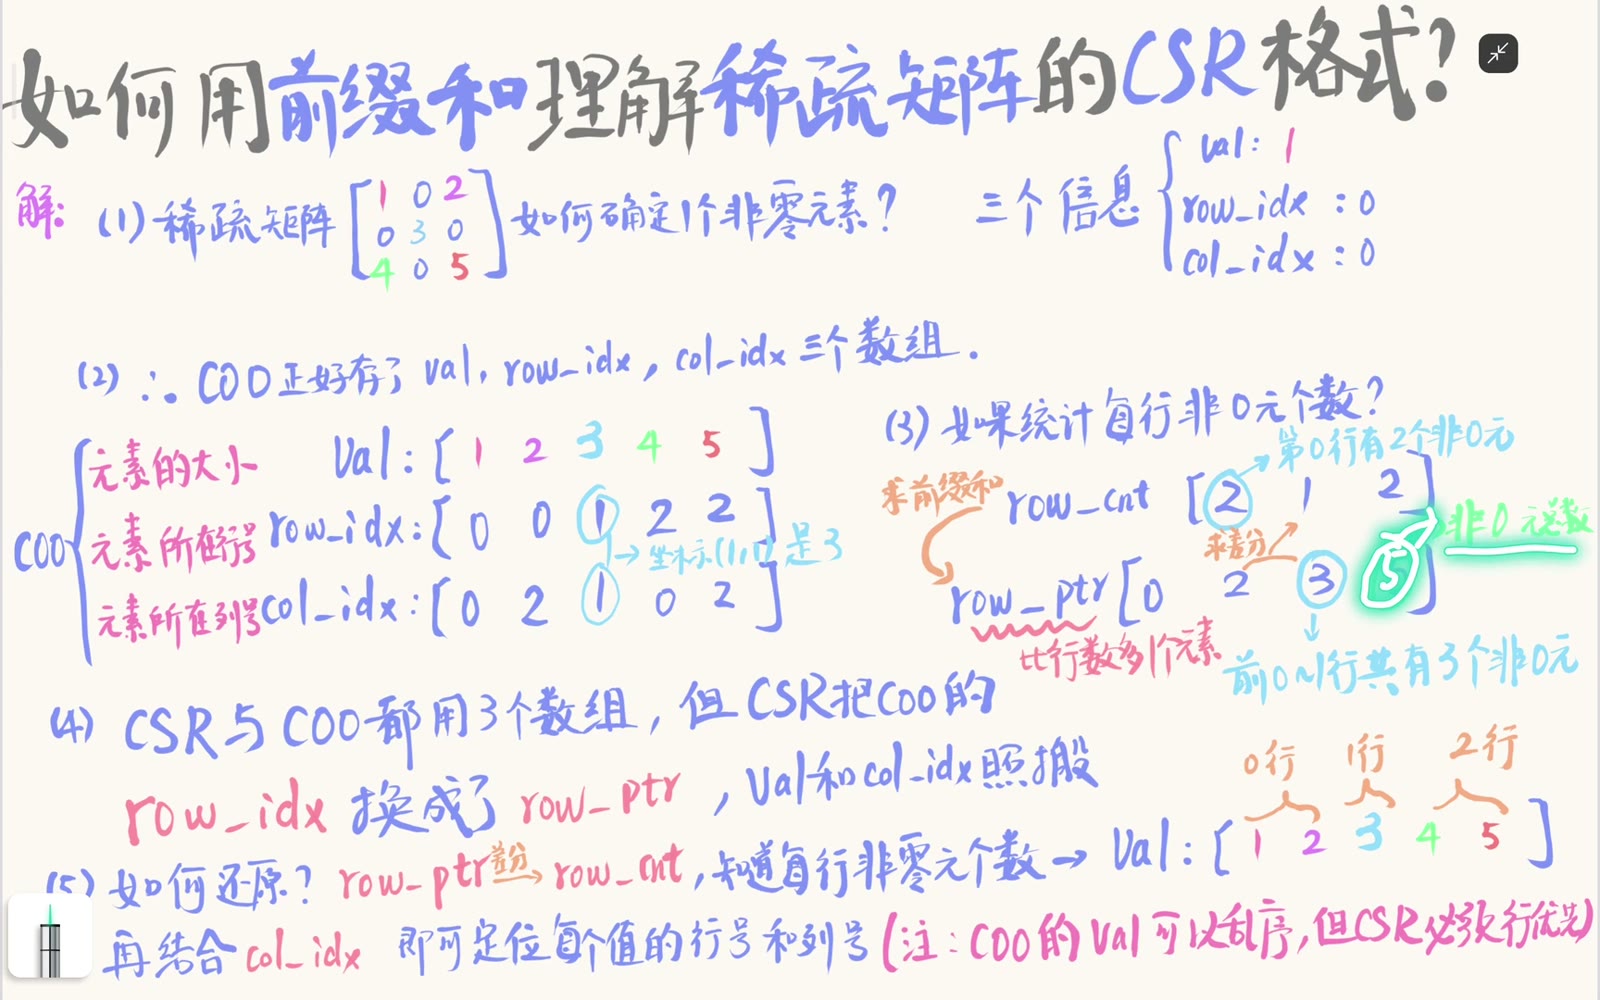 如何用前缀和理解稀疏矩阵的CSR格式?
解:
(1) 稀疏矩阵 [1 0 2
0 3 0
4 0 5] 如何确定1个非零元素? 三个信息 { val: 1
row_idx : 0
col_idx : 0
(2) ∴ COO正好存了 val, row_idx, col_idx 三个数组.
COO { 元素的大小 Val: [ 1 2 3 4 5 ]
元素所在行号 row_idx: [ 0 0 1 2 2 ]
→ 坐标(1,1)是3
元素所在列号 col_idx: [ 0 2 1 0 2 ]
(3) 如果统计每行非0元个数?
→ 第0行有2个非0元
求前缀和 row_cnt [ 2 1 2 ]
求差分 非0元总数
row_ptr [ 0 2 3 5 ]
比行数多1个元素
前0~1行共有3个非0元
(4) CSR与COO都用3个数组, 但CSR把COO的
row_idx 换成了 row_ptr , Val和col_idx照搬
(5) 如何还原? row_ptr 差分→ row_cnt, 知道每行非零元个数 → Val: [ 1 2 3 4 5 ]
0行 1行 2行
再结合 col_idx 即可定位每个值的行号和列号 (注: COO的Val可以乱序, 但CSR必须行优先)